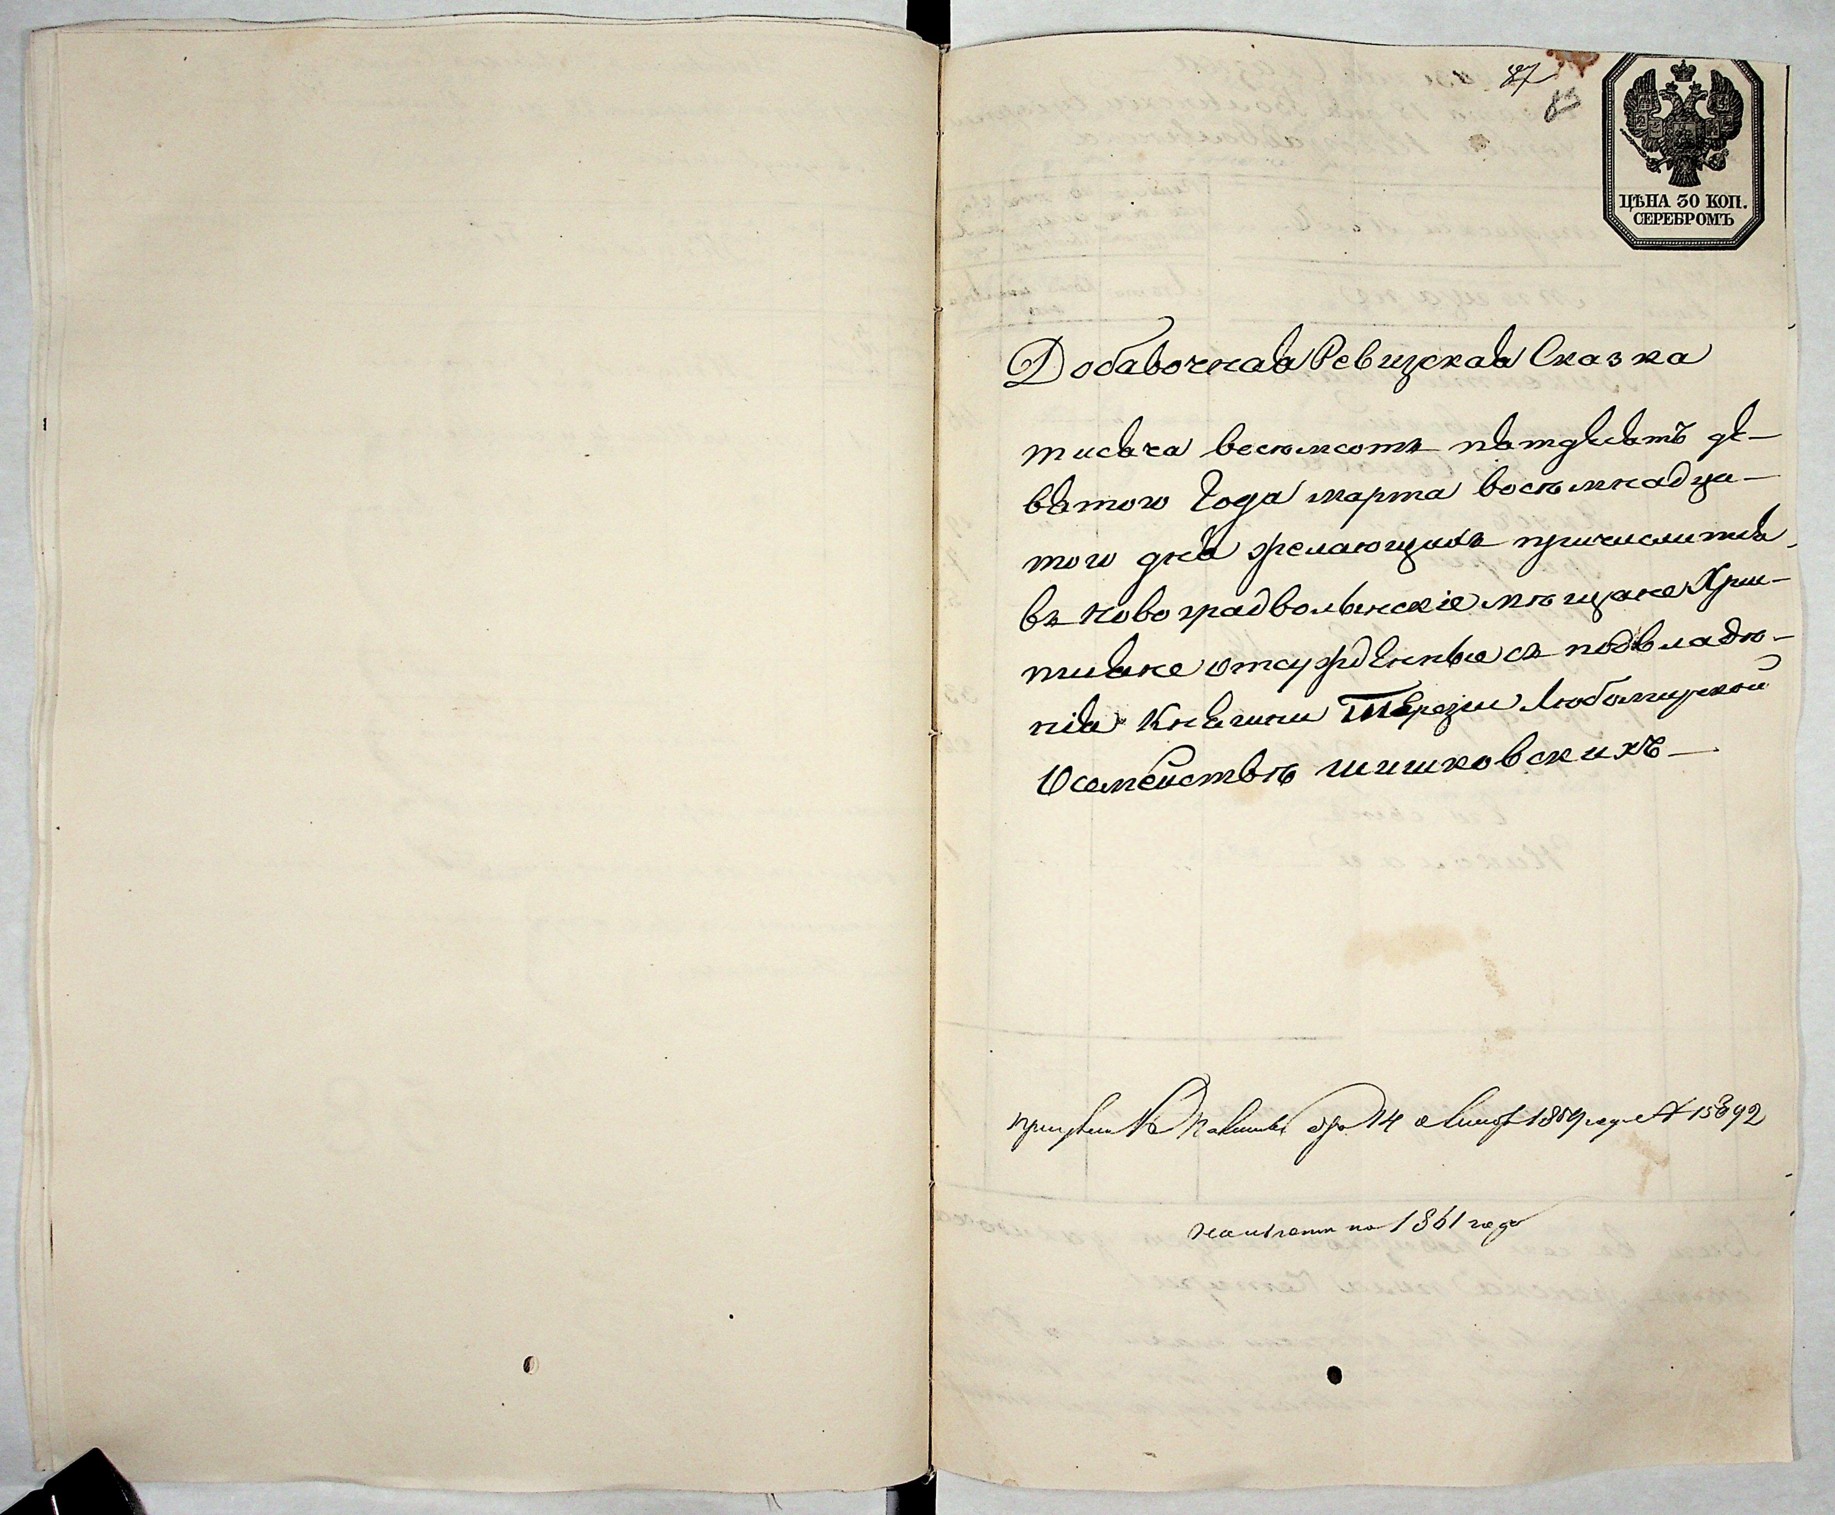 87
ЦѢНА 30 КОП.
СЕРЕБРОМЪ
Добавочная Ревизская Сказка
тисяча восемсотъ пятдесятъ де-
вятого Года марта восемнадця-
того дня желающихъ причислится
въ Новоградволынскіе мѣщане Хри-
тияне отсужденные съ подвладѣ-
нія Княгини Терезіи Любомирской
О семействѣ шишковскихъ
14 1859 года № 15992
1861 года